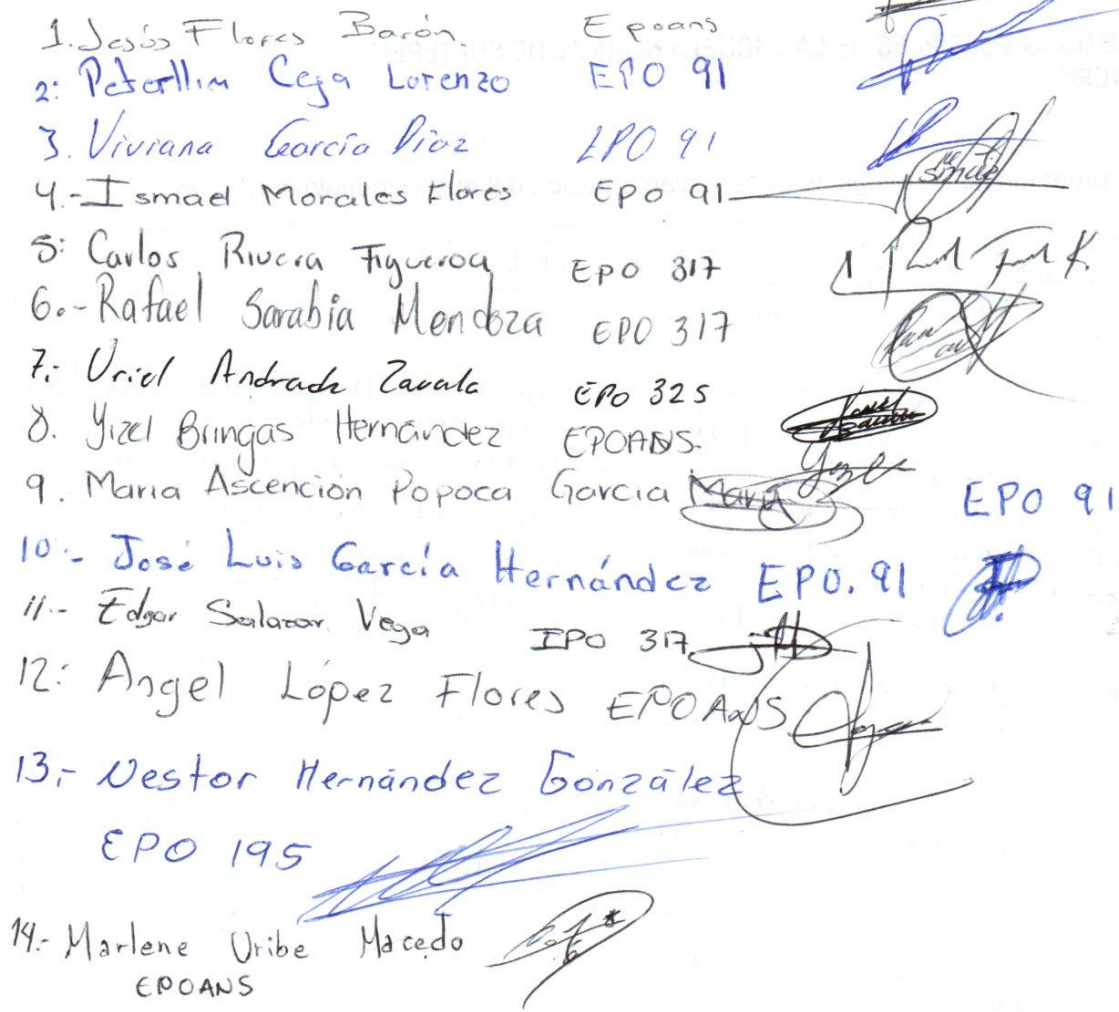 1. Jesús Flores Barón Epoans
2: Peterllim Ceja Lorenzo EPO 91
3. Viviana García Díaz EPO 91
4.- Ismael Morales Flores EPO 91
5: Carlos Rivera Figueroa EPO 317
6.- Rafael Sarabia Mendoza EPO 317
7.- Uriel Andrade Zavala EPO 325
8. Yizel Bringas Hernández EPOANS.
9. María Ascención Popoca García Mary EPO 91
10.- José Luis García Hernández EPO. 91
11.- Edgar Salazar Vega EPO 317
12: Angel López Flores EPOANS
13.- Nestor Hernández González
EPO 195
14.- Marlene Uribe Macedo
EPOANS